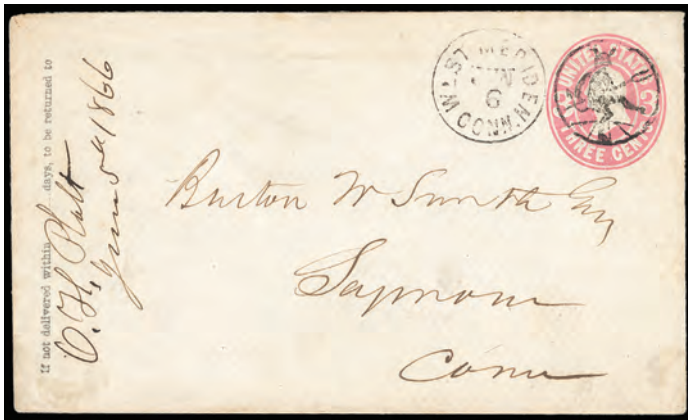 If not delivered within ..... days, to be returned to
O. H. Platt
June 5th 1866
WEST MERIDEN
CONN.
JUN
6
UNITED STATES
3 3
THREE CENTS
Burton W Smith Esq
Seymour
Conn